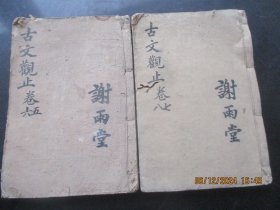 古文觀止卷五六
謝雨堂
古文觀止卷七八
謝雨堂